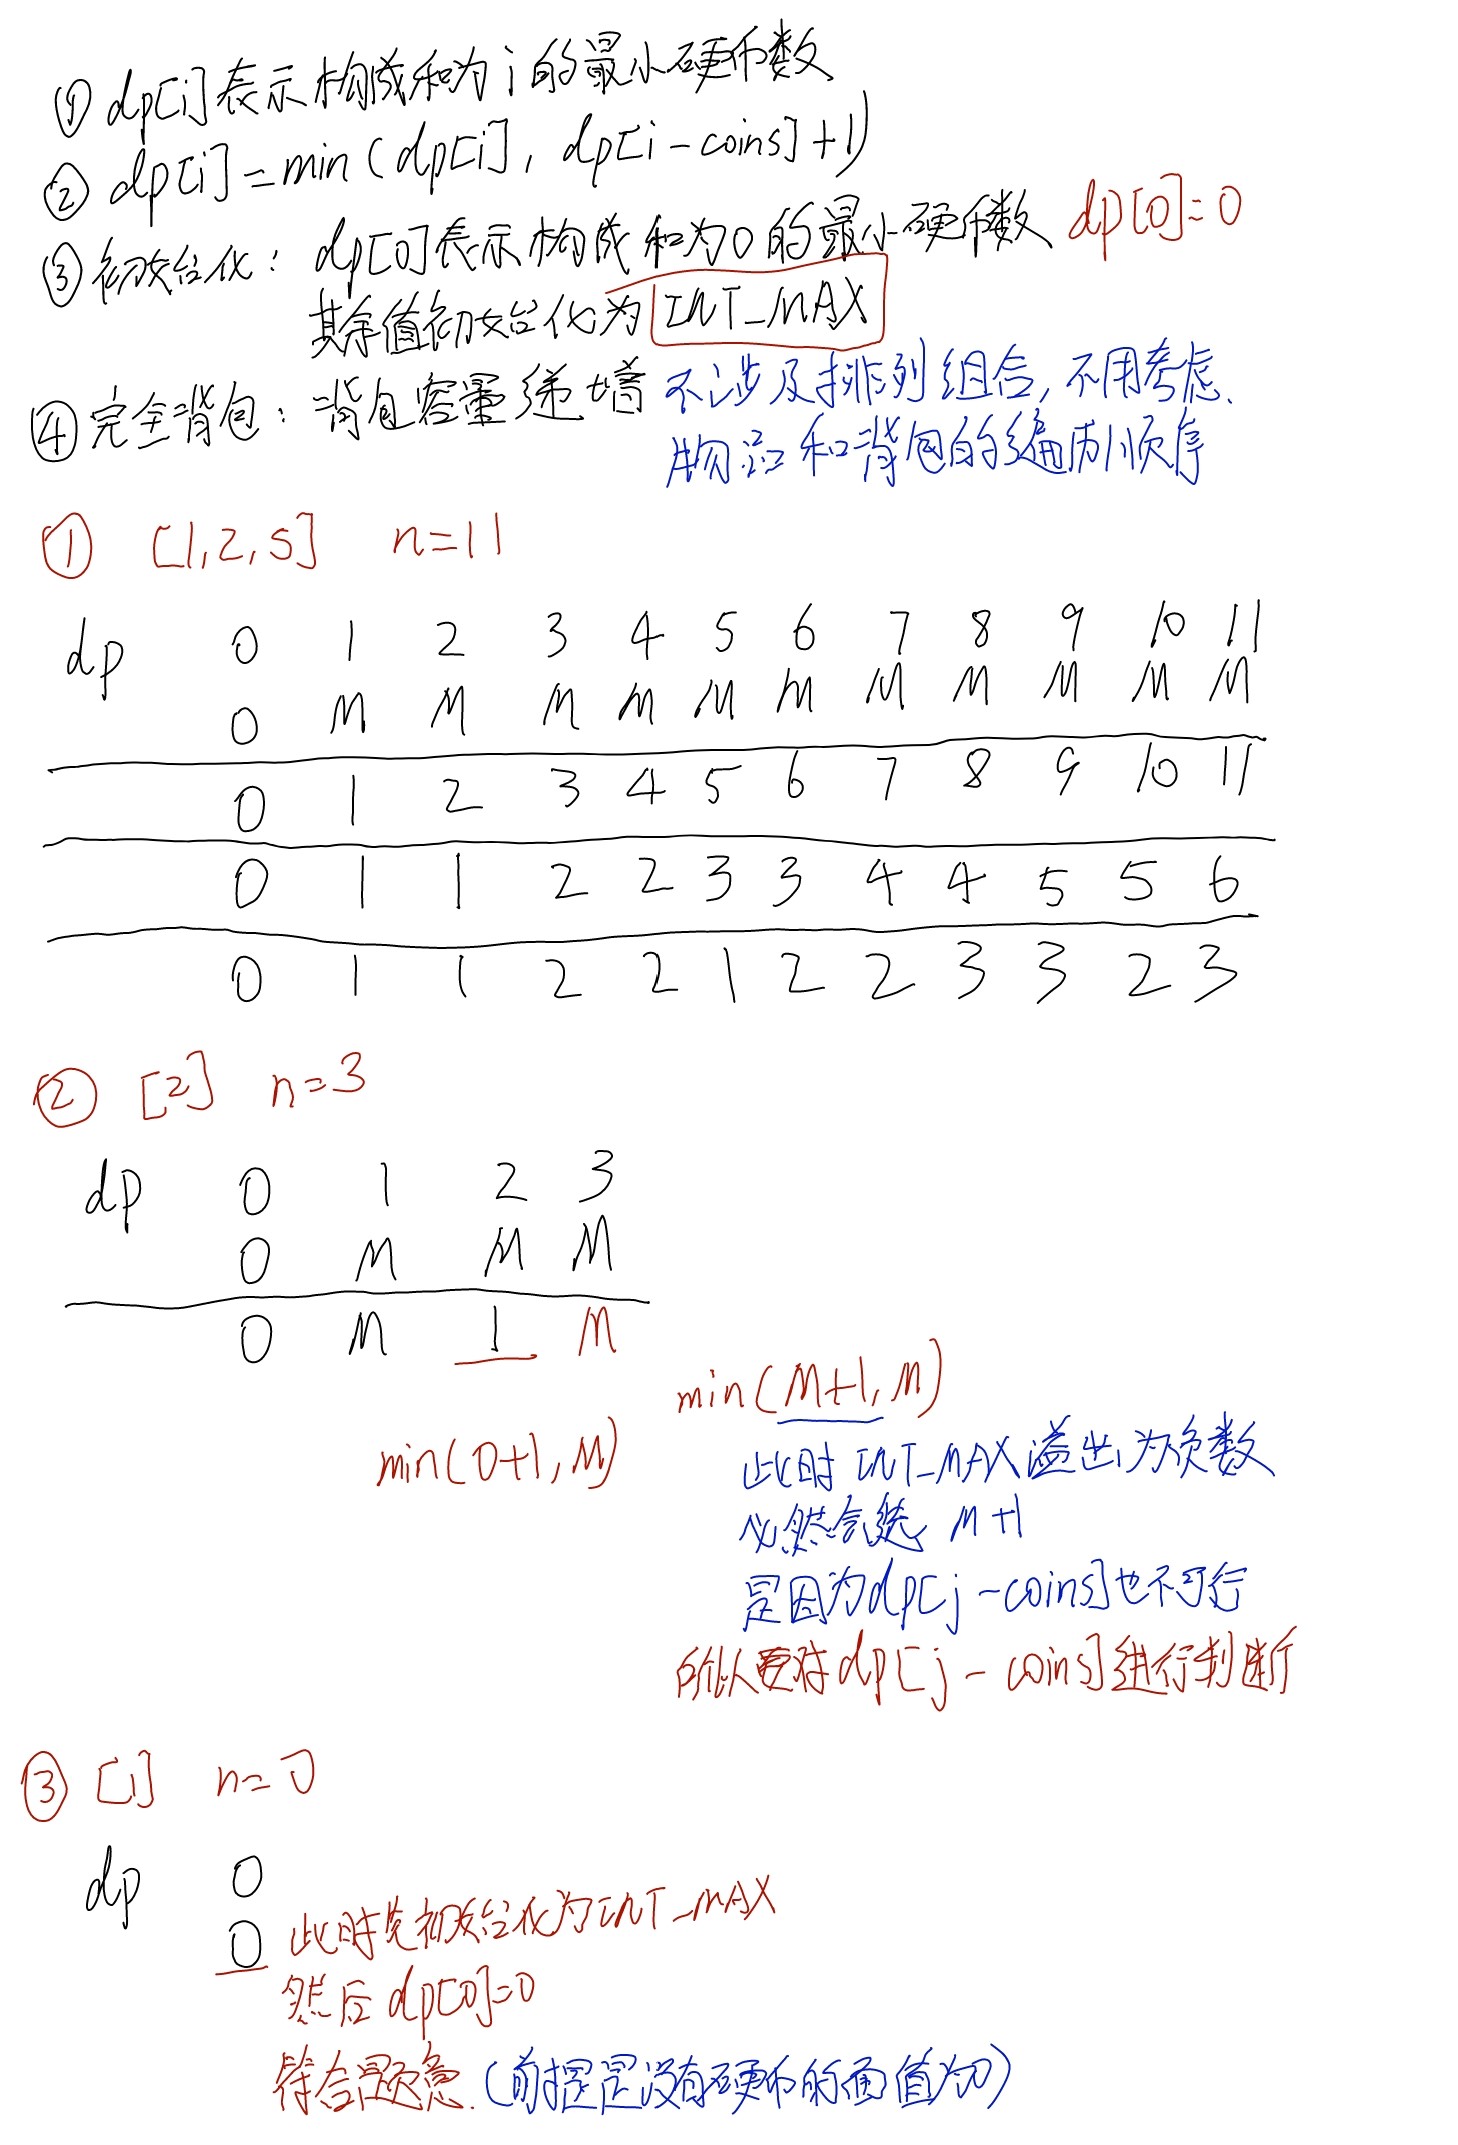 ① dp[i]表示构成和为i的最小硬币数
② dp[i]=min(dp[i], dp[i-coins]+1)
③ 初始化: dp[0]表示构成和为0的最小硬币数 dp[0]=0
其余值初始化为 INT_MAX
④ 完全背包: 背包容量递增 不涉及排列组合,不用考虑
物品和背包的遍历顺序
① [1,2,5] n=11
dp 0 1 2 3 4 5 6 7 8 9 10 11
0 M M M M M M M M M M M
0 1 2 3 4 5 6 7 8 9 10 11
0 1 1 2 2 3 3 4 4 5 5 6
0 1 1 2 2 1 2 2 3 3 2 3
② [2] n=3
dp 0 1 2 3
0 M M M
0 M 1 M
min(M+1,M)
min(0+1,M)
此时 INT_MAX溢出,为负数
必然会选 M+1
是因为dp[j-coins]也不可行
所以要对dp[j-coins]进行判断
③ [1] n=0
dp 0
0 此时先初始化为INT_MAX
然后dp[0]=0
符合题意.(前提是没有硬币的面值为0)